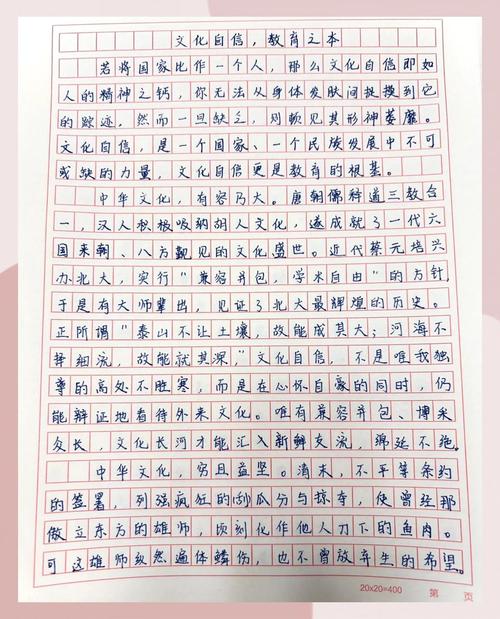 文化自信，教育之本
若将国家比作一个人，那么文化自信即如
人的精神之钙，你无法从身体发肤间捉摸到它
的踪迹，然而一旦缺乏，则顿见其形神萎靡。
文化自信，是一个国家、一个民族发展中不可
或缺的力量，文化自信更是教育的根基。
中华文化，有容乃大。唐朝儒释道三教合
一，汉人积极吸纳胡人文化，遂成就了一代六
国来朝、八方觐见的文化盛世。近代蔡元培兴
办北大，实行“兼容并包，学术自由”的方针，
于是有大师辈出，见证了北大最辉煌的历史。
正所谓“泰山不让土壤，故能成其大；河海不
择细流，故能就其深，”文化自信，不是唯我独
尊的高处不胜寒，而是在心怀自豪的同时，仍
能辩证地看待外来文化。唯有兼容并包、博采
众长，文化长河才能汇入新鲜支流，绵延不绝。
中华文化，穷且益坚。清末，不平等条约
的签署，列强疯狂的刮瓜分与掠夺，使曾经那
傲立东方的雄师，顷刻化作他人刀下的鱼肉。
可这雄师纵然遍体鳞伤，也不曾放弃生的希望。
20x20=400 第 页